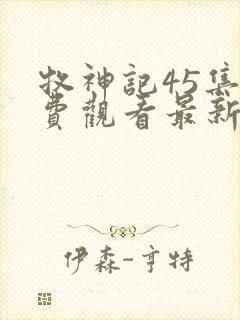 牧神記45集
費觀看最新
伊森-亨特